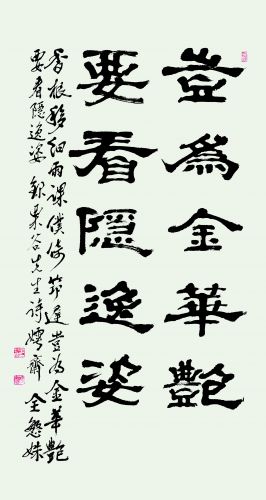 豈為金華艷
要看隱逸姿
香根移細雨課僕倚筇遲豈為金華艷
要看隱逸姿 錄東谷先生詩 齋 全姝